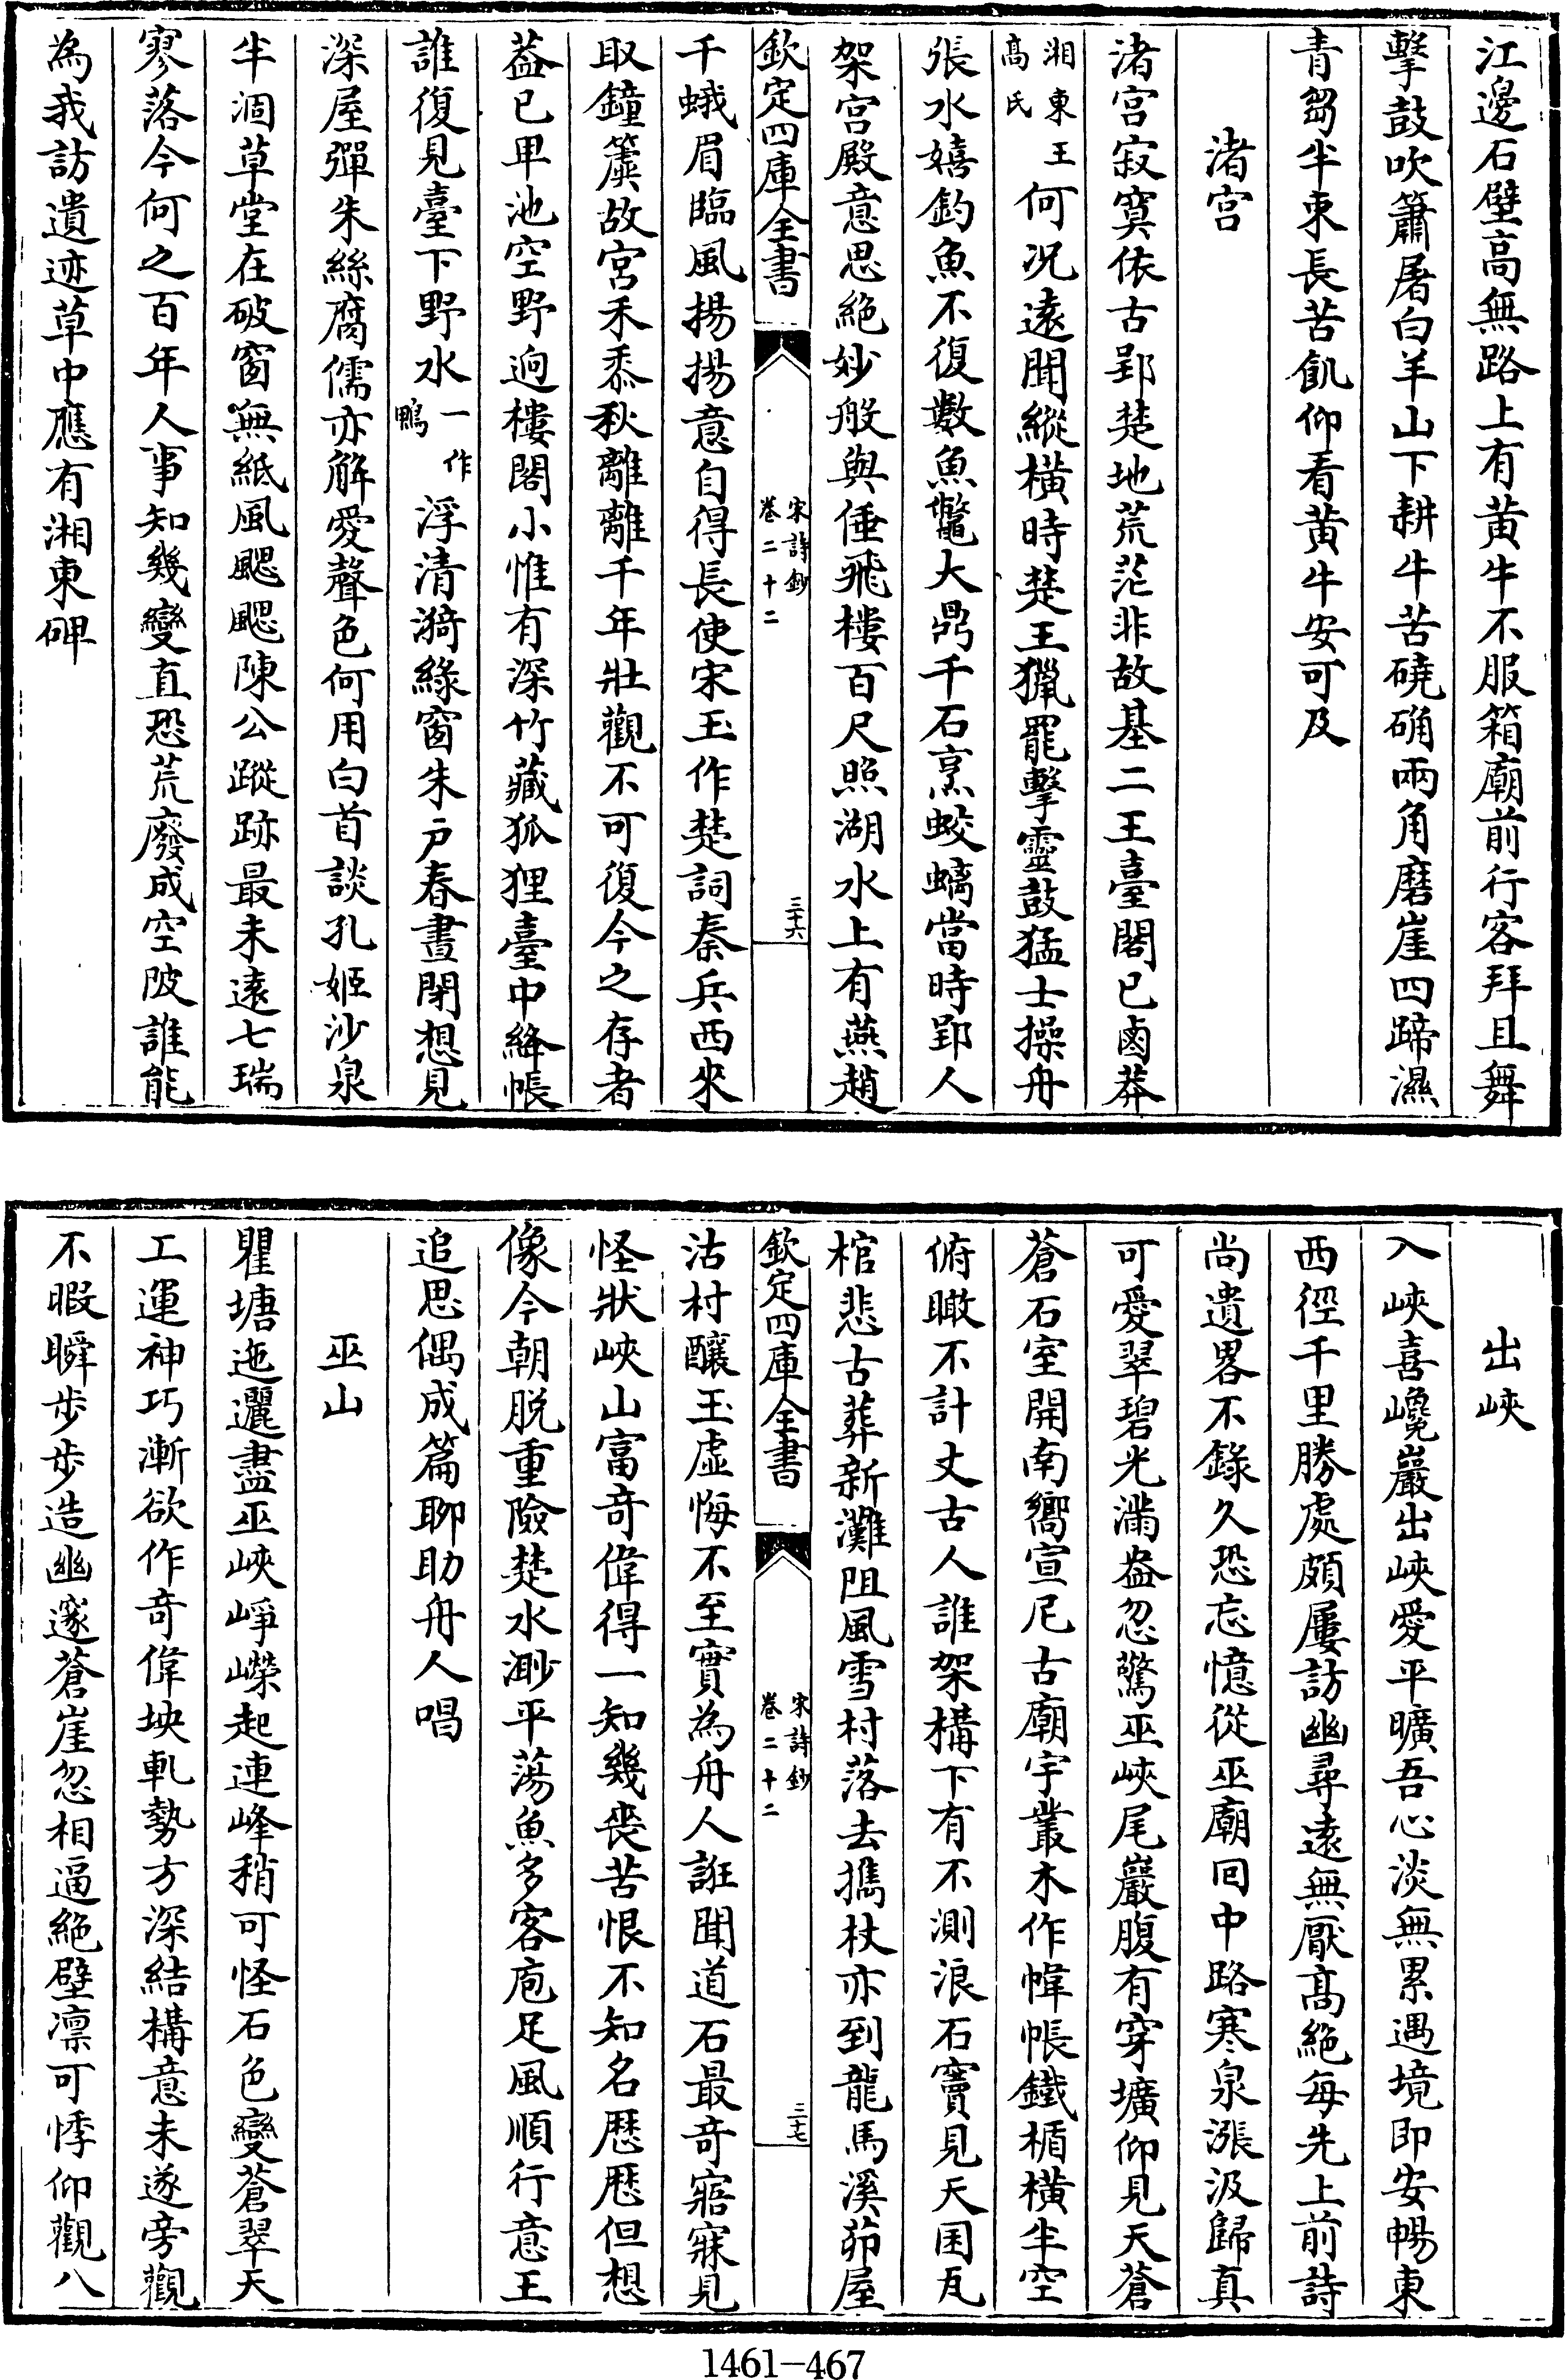 江邊石壁高無路上有黄牛不服箱廟前行客拜且舞
擊鼓吹簫屠白羊山下耕牛苦磽确兩角磨崖四蹄濕
青芻半束長苦飢仰看黄牛安可及
渚宫
渚宫寂寞依古郢楚地荒茫非故基二王臺閣已鹵莽
湘東王高氏何況逺聞縱横時楚王獵罷擊靈鼓猛士操舟
張水嬉釣魚不復數魚鼈大鼎千石烹蛟螭當時郢人
架宫殿意思絶妙般與倕飛樓百尺照湖水上有燕趙
欽定四庫全書
宋詩鈔
卷二十二
三十六
千蛾眉臨風揚揚意自得長使宋玉作楚詞秦兵西來
取鐘簴故宫禾黍秋離離千年壯觀不可復今之存者
葢已甲池空野迥樓閣小惟有深竹藏狐狸臺中絳帳
誰復見臺下野水一作鴨浮清漪緑窗朱户春晝閉想見
深屋彈朱絲腐儒亦解愛聲色何用白首談孔姬沙泉
半涸草堂在破窗無紙風颸颸陳公蹤跡最未逺七瑞
寥落今何之百年人事知幾變直恐荒廢成空陂誰能
為我訪遺迹草中應有湘東碑
出峽
入峽喜巉巖出峽愛平曠吾心淡無累遇境即安暢東
西徑千里勝處頗屢訪幽尋逺無厭髙絶每先上前詩
尚遺畧不錄久恐忘憶從巫廟回中路寒泉漲汲歸真
可愛翠碧光滿盎忽驚巫峽尾巖腹有穿壙仰見天蒼
蒼石室開南嚮宣尼古廟宇叢木作幃帳鐵楯横半空
俯瞰不計丈古人誰架構下有不測浪石竇見天囷瓦
棺悲古葬新灘阻風雪村落去攜杖亦到龍馬溪茆屋
欽定四庫全書
宋詩鈔
卷二十二
三十七
沽村釀玉虚悔不至實為舟人誑聞道石最奇寤寐見
怪狀峽山富奇偉得一知幾喪苦恨不知名歴歴但想
像今朝脱重險楚水渺平蕩魚多客庖足風順行意王
追思偶成篇聊助舟人唱
巫山
瞿塘迤邐盡巫峽崢嶸起連峰稍可怪石色變蒼翠天
工運神巧漸欲作奇偉坱軋勢方深結構意未遂旁觀
不暇瞬步步造幽邃蒼崖忽相逼絶壁凛可悸仰觀八
1461-467